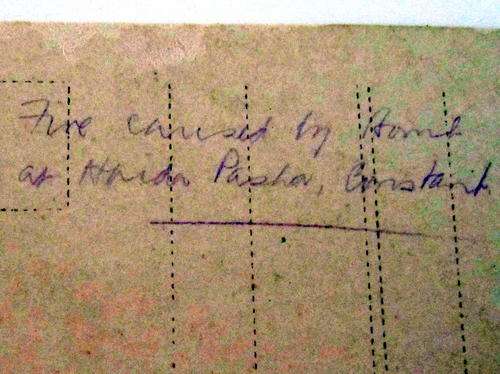 Fire caused by Bomb
at Haida Pasha, Constant